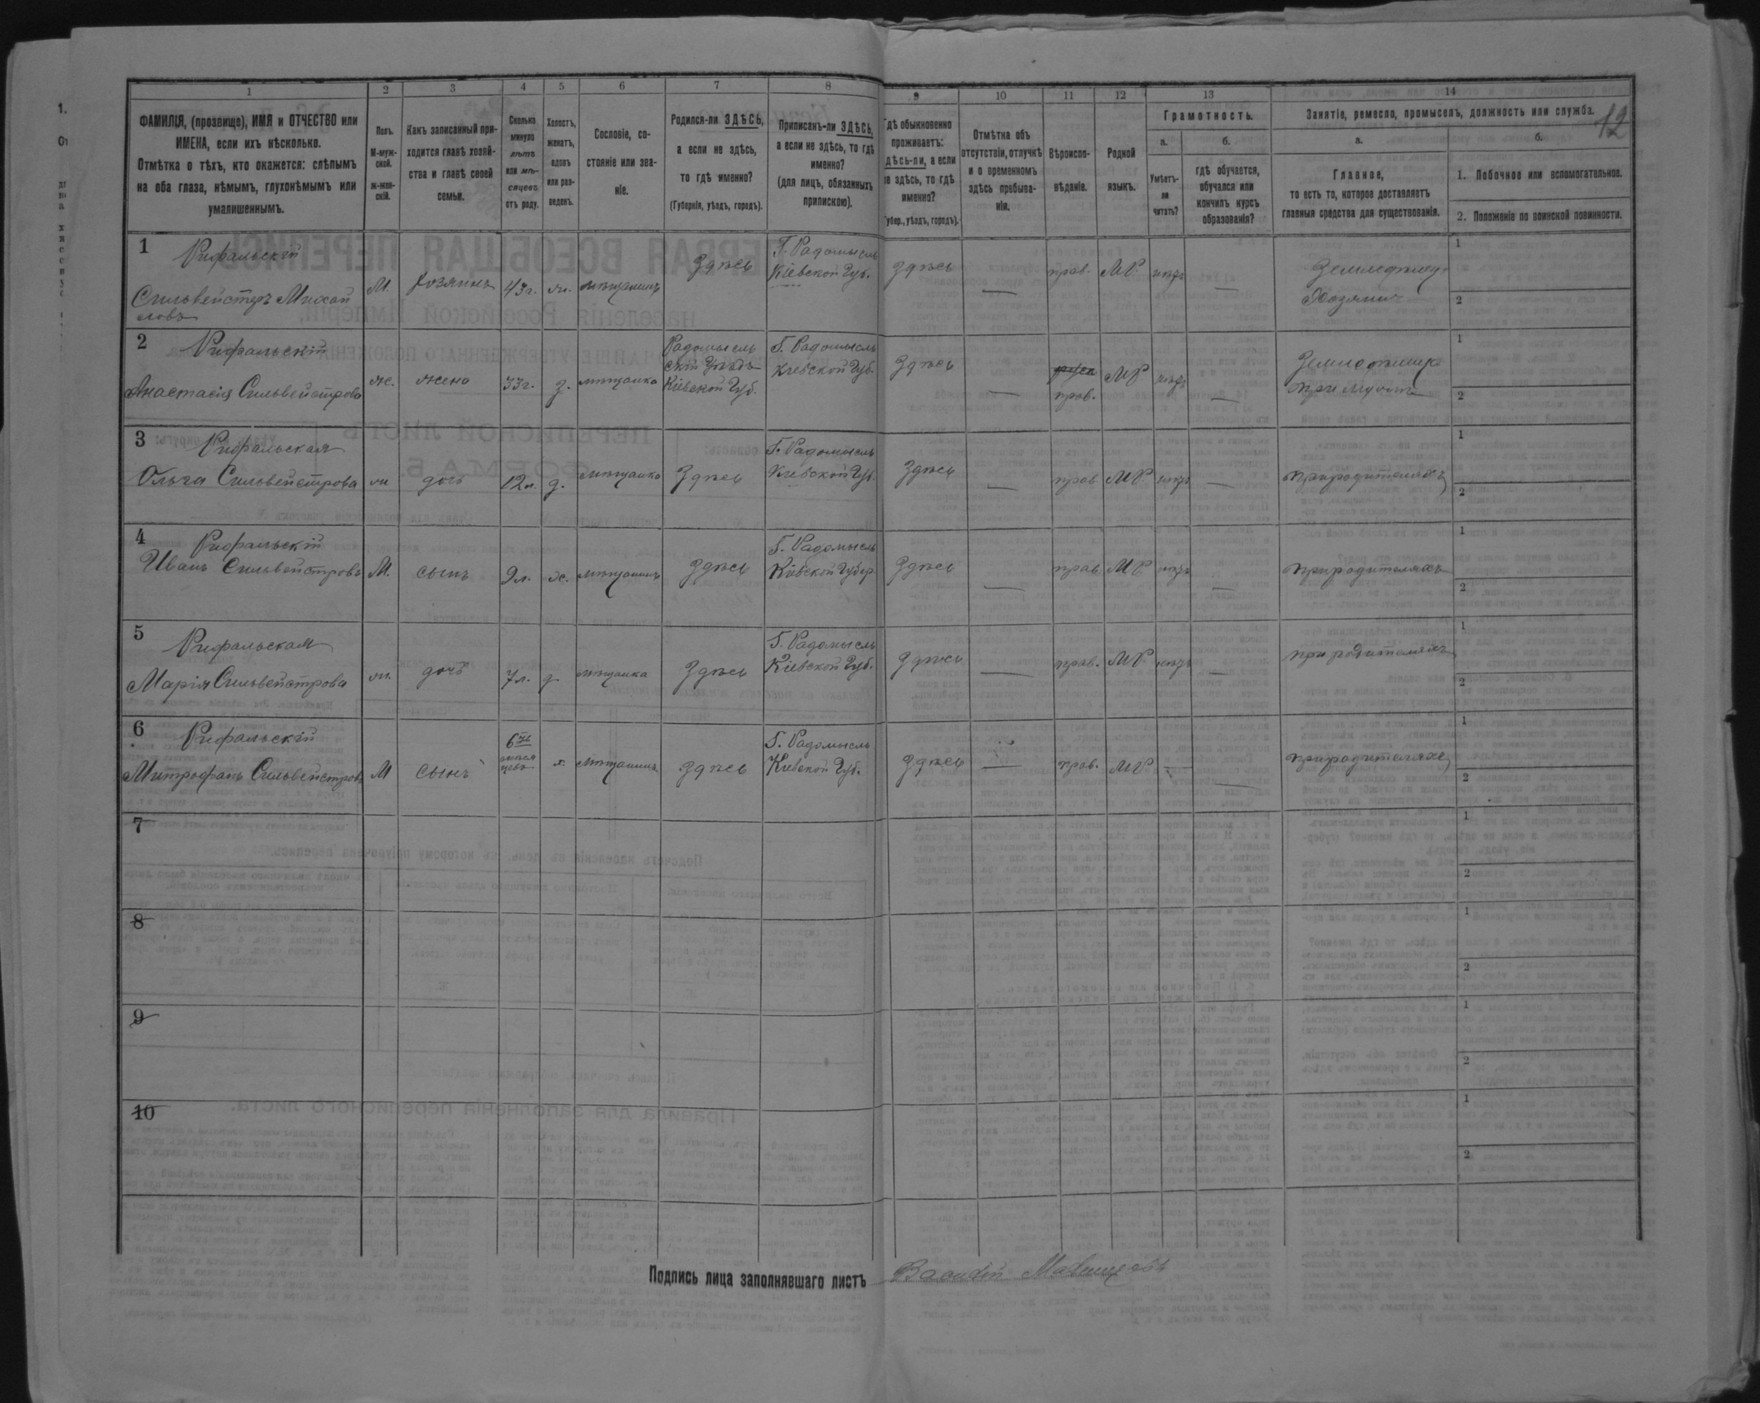 1 2 3 4 5 6 7 8 9 10 11 12 13 14
ФАМИЛІЯ, (прозвище), ИМЯ и ОТЧЕСТВО или
ИМЕНА, если ихъ нѣсколько.
Отмѣтка о тѣхъ, кто окажется: слѣпымъ
на оба глаза, нѣмымъ, глухонѣмымъ или
умалишеннымъ.
Полъ.
М-муж-
ской.
ж-жен-
скій.
Какъ записанный при-
ходится главѣ хозяй-
ства и главѣ своей
семьи.
Сколько
минуло
лѣтъ
или мѣ-
сяцевъ
отъ роду.
Холостъ,
женатъ,
вдовъ
или раз-
веденъ.
Сословіе, со-
стояніе или зва-
ніе.
Родился-ли ЗДѢСЬ,
а если не здѣсь,
то гдѣ именно?
(Губернія, уѣздъ, городъ).
Приписанъ-ли ЗДѢСЬ,
а если не здѣсь, то гдѣ
именно?
(для лицъ, обязанныхъ
припискою).
гдѣ обыкновенно
проживаетъ:
здѣсь-ли, а если
не здѣсь, то гдѣ
именно?
(Губер., уѣздъ, городъ).
Отмѣтка объ
отсутствіи, отлучкѣ
и о временномъ
здѣсь пребыва-
ніи.
Вѣроиспо-
вѣданіе.
Родной
языкъ.
Грамотность.
а.
Умѣетъ-
ли
читать?
б.
гдѣ обучается,
обучался или
кончилъ курсъ
образованія?
Занятіе, ремесло, промыселъ, должность или служба.
12
а.
Главное,
то есть то, которое доставляетъ
главныя средства для существованія.
б.
1. Побочное или вспомогательное.
2. Положеніе по воинской повинности.
1 Рифальскій
Сильвейстеръ Михай
ловъ
М. Хозяинъ 43г. ж. мѣщанинъ Здѣсь
Г. Радомысль
Кіевской Губ.
Здѣсь — прав. МР. нѣтъ —
Земледѣлец
Хозяинъ
1
2
2 Рифальскій
Анастасія Сильвейстрова
ж. жена 33г. з. мѣщанка
Радомысль
скій уѣздъ
Кіевской Губ.
Г. Радомысль
Кіевской Губ.
Здѣсь — прав. МР нѣтъ —
при мужѣ
1
2
3 Рифальская
Ольга Сильвейстрова
ж дочь 12л. д. мѣщанка Здѣсь
Г. Радомысль
Кіевской Губ.
Здѣсь — прав МР нѣтъ —
при родителяхъ
1
2
4 Рифальскій
Иванъ Сильвейстровъ
М. сынъ 9л. х. мѣщанинъ Здѣсь
Г. Радомысль
Кіевской Губер.
Здѣсь — прав МР нѣтъ —
при родителяхъ
1
2
5 Рифальская
Марія Сильвейстрова
ж. дочь 7л. д. мѣщанка Здѣсь
Г. Радомысль
Кіевской Губ.
Здѣсь — прав. МР нѣтъ —
при родителяхъ
1
2
6 Рифальскій
Митрофанъ Сильвейстровъ
М сынъ
6ти
мѣся
цевъ
х. мѣщанинъ Здѣсь
Г. Радомысль
Кіевской Губ.
Здѣсь — прав. МР — —
при родителяхъ
1
2
7
1
2
8
1
2
9
1
2
10
1
2
Подпись лица заполнявшаго листъ